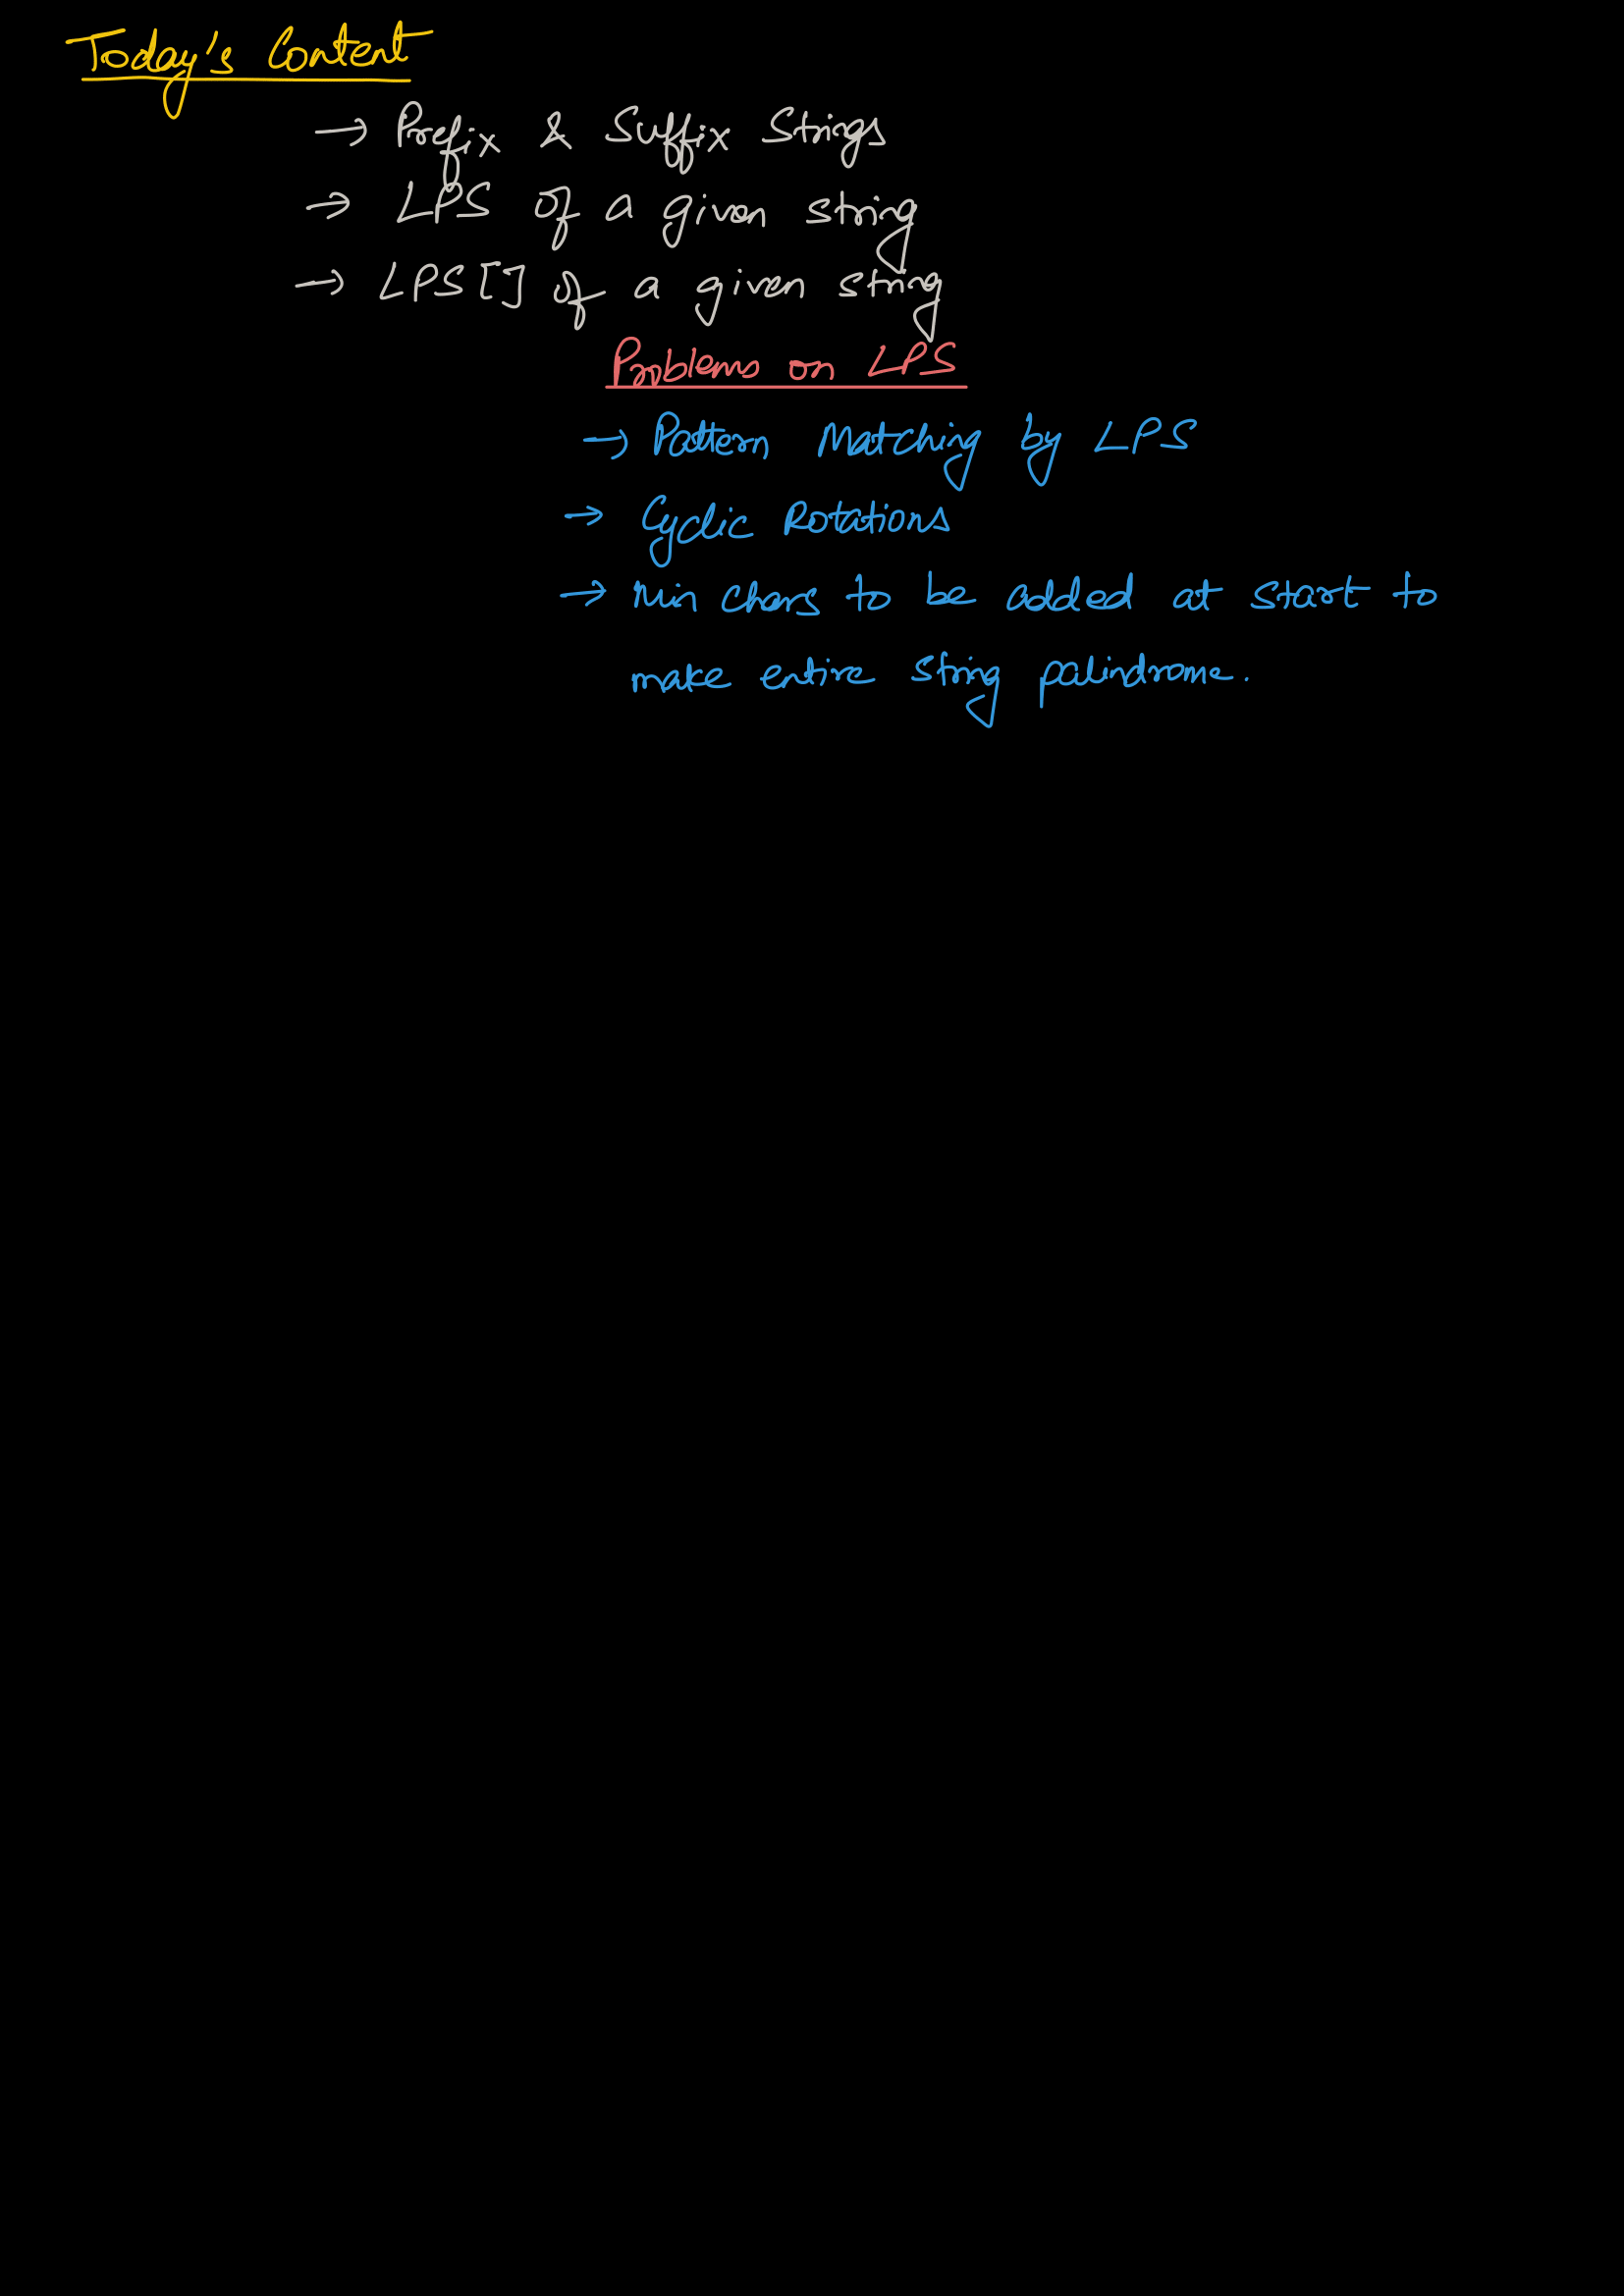 Today's Content
→ Prefix & Suffix Strings
→ LPS of a given string
→ LPS[] of a given string
Problems on LPS
→ Pattern Matching by LPS
→ Cyclic Rotations
→ Min chars to be added at start to
make entire string palindrome.